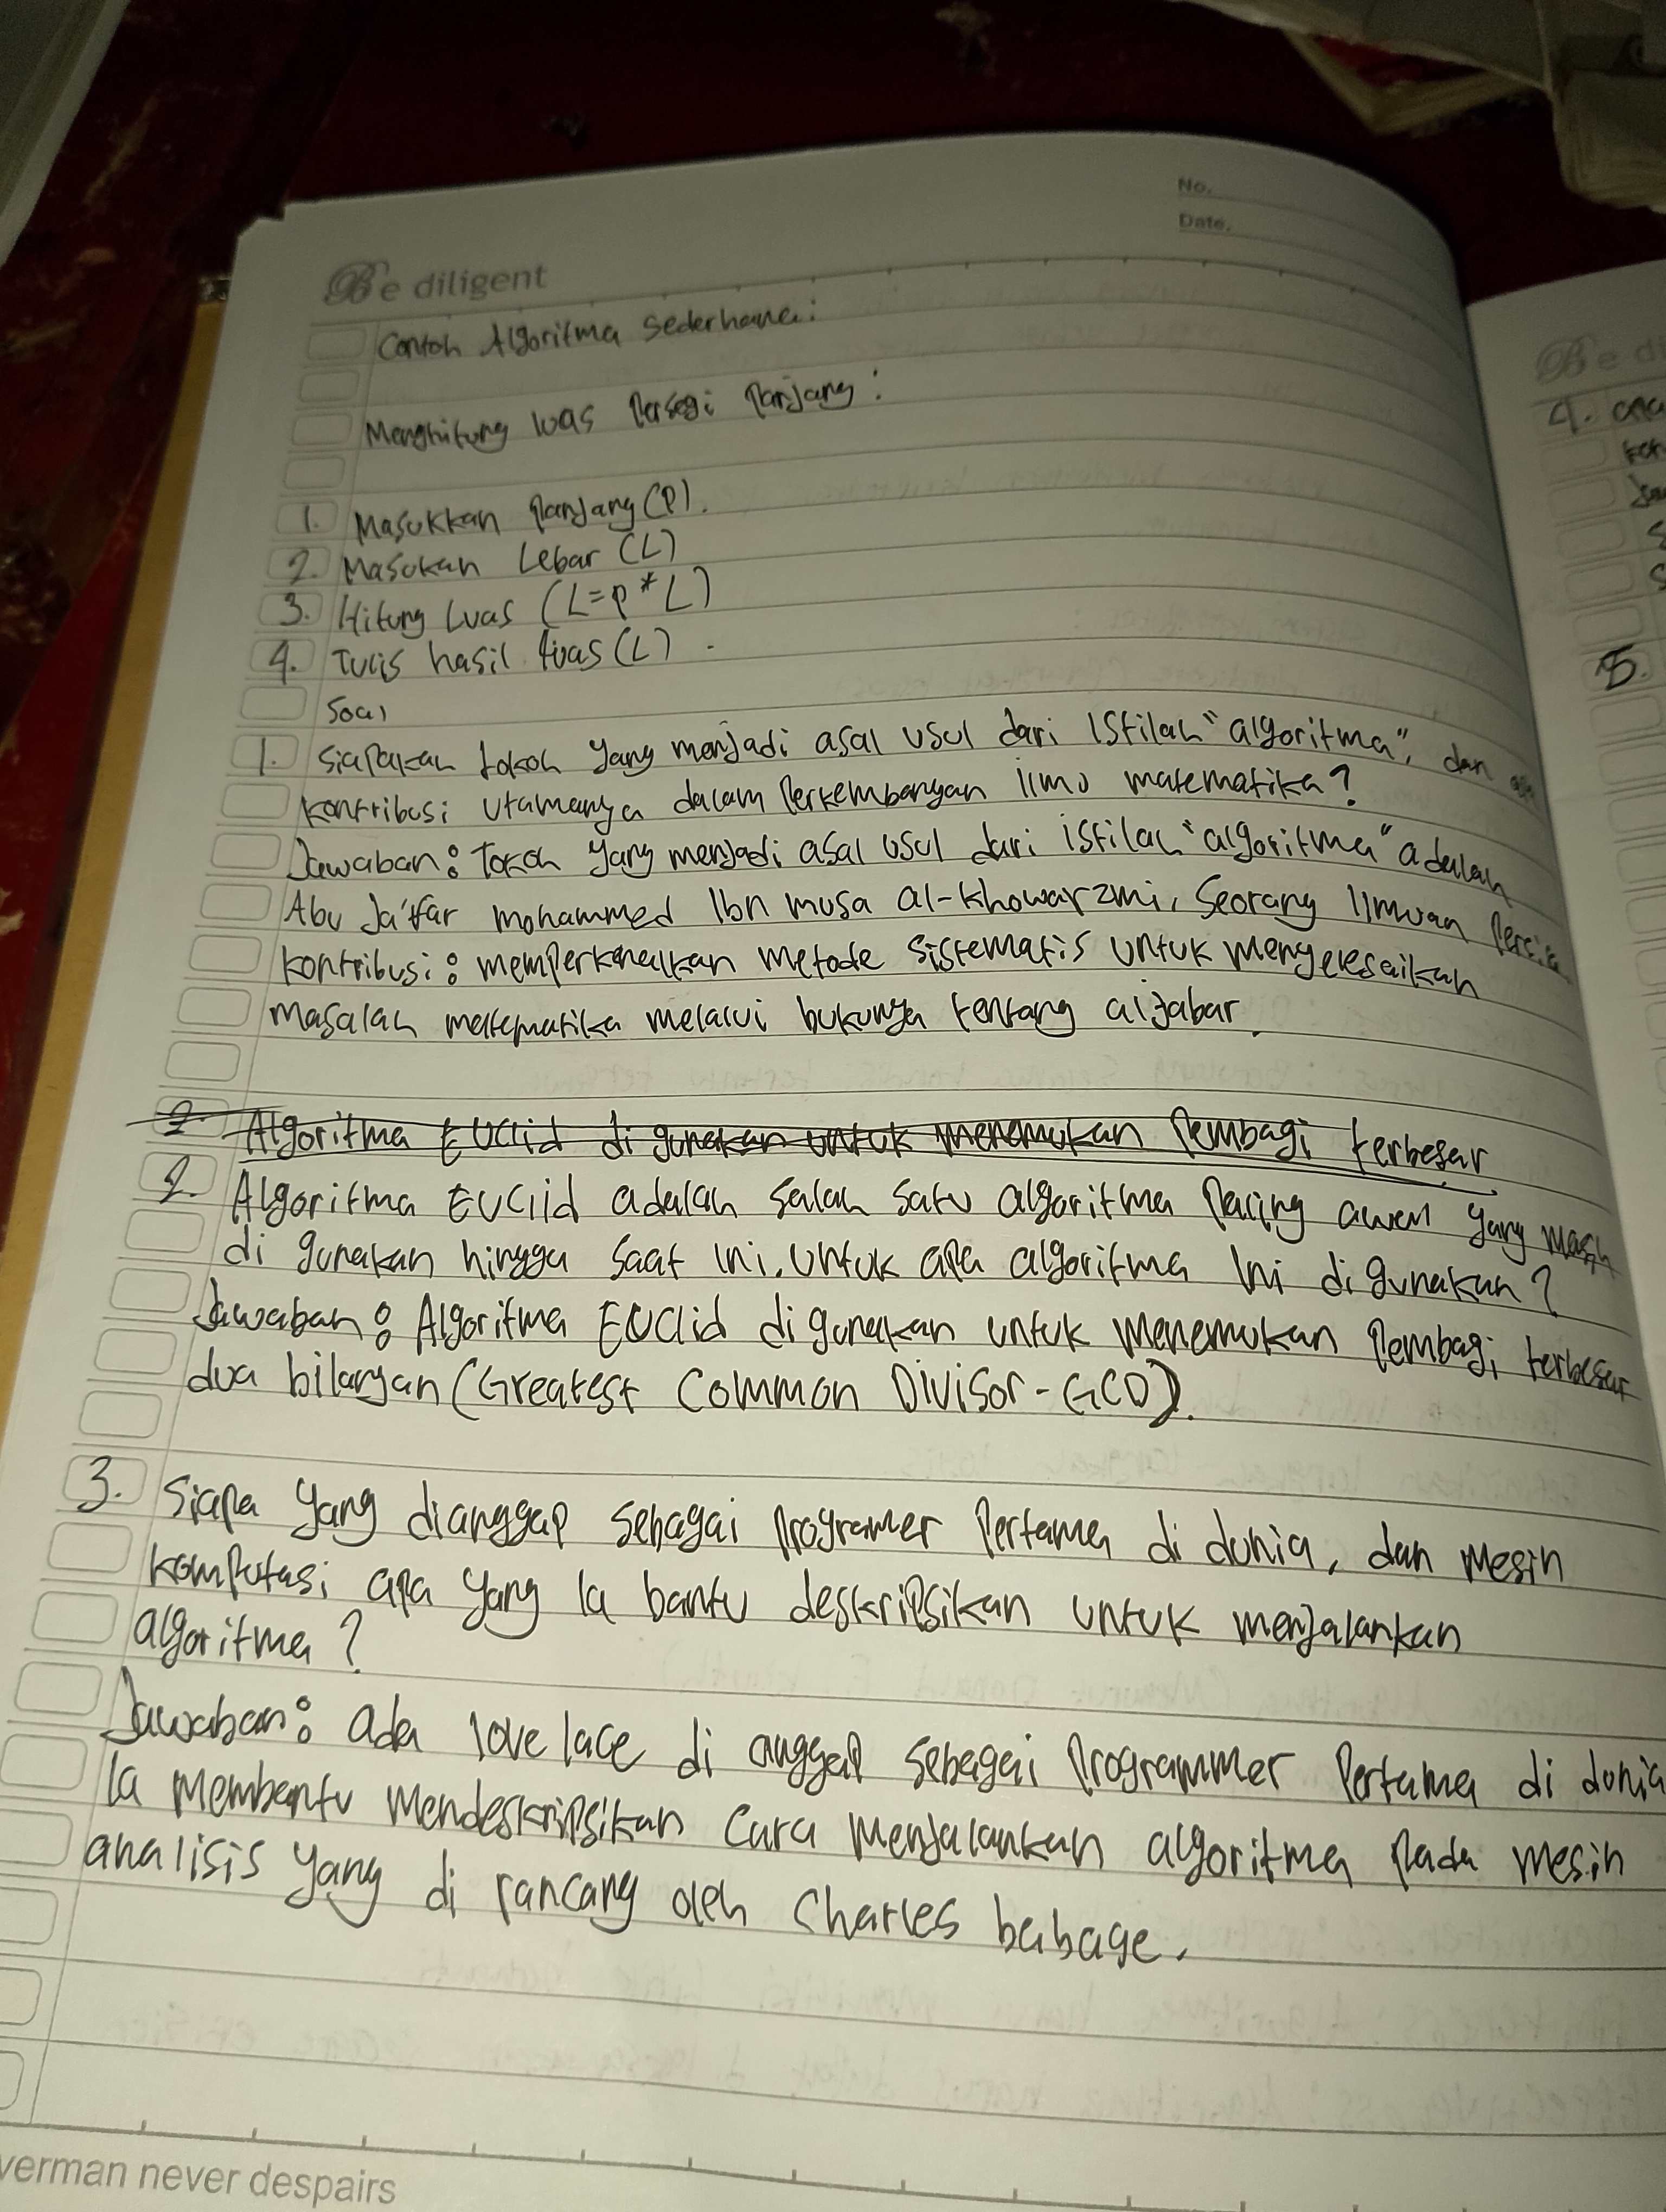 No.
Date.
Be diligent
Contoh Algoritma sederhana:
Menghitung luas Persegi Panjang:
1. Masukkan Panjang (P).
2. Masukan Lebar (L)
3. Hitung Luas (L=P*L)
4. Tulis hasil luas (L).
Soal
1. Siapakah tokoh yang menjadi asal usul dari istilah "algoritma", dan
kontribusi utamanya dalam Perkembangan ilmu matematika?
Jawaban: Tokoh yang menjadi asal usul dari istilah "algoritma" adalah
Abu Ja'far mohammed Ibn musa al-khowarzmi, Seorang Ilmuan Persia
kontribusi: memperkenalkan metode sistematis untuk menyelesaikan
masalah matematika melalui bukunya tentang aljabar.
2. Algoritma Euclid di gunakan untuk menemukan Pembagi terbesar
2. Algoritma Euclid adalah salah satu algoritma Paling awal yang masih
di gunakan hingga saat ini. untuk apa algoritma ini di gunakan?
Jawaban: Algoritma Euclid di gunakan untuk menemukan Pembagi terbesar
dua bilangan (Greatest Common Divisor - GCD).
3. Siapa yang dianggap sebagai Programer Pertama di dunia, dan mesin
komputasi apa yang Ia bantu deskripsikan untuk menjalankan
algoritma?
Jawaban: ada love lace di anggap sebagai Programmer Pertama di dunia
Ia membantu mendeskripsikan cara menjalankan algoritma Pada mesin
analisis yang di rancang oleh Charles babage.
verman never despairs
Be di
4.
5.